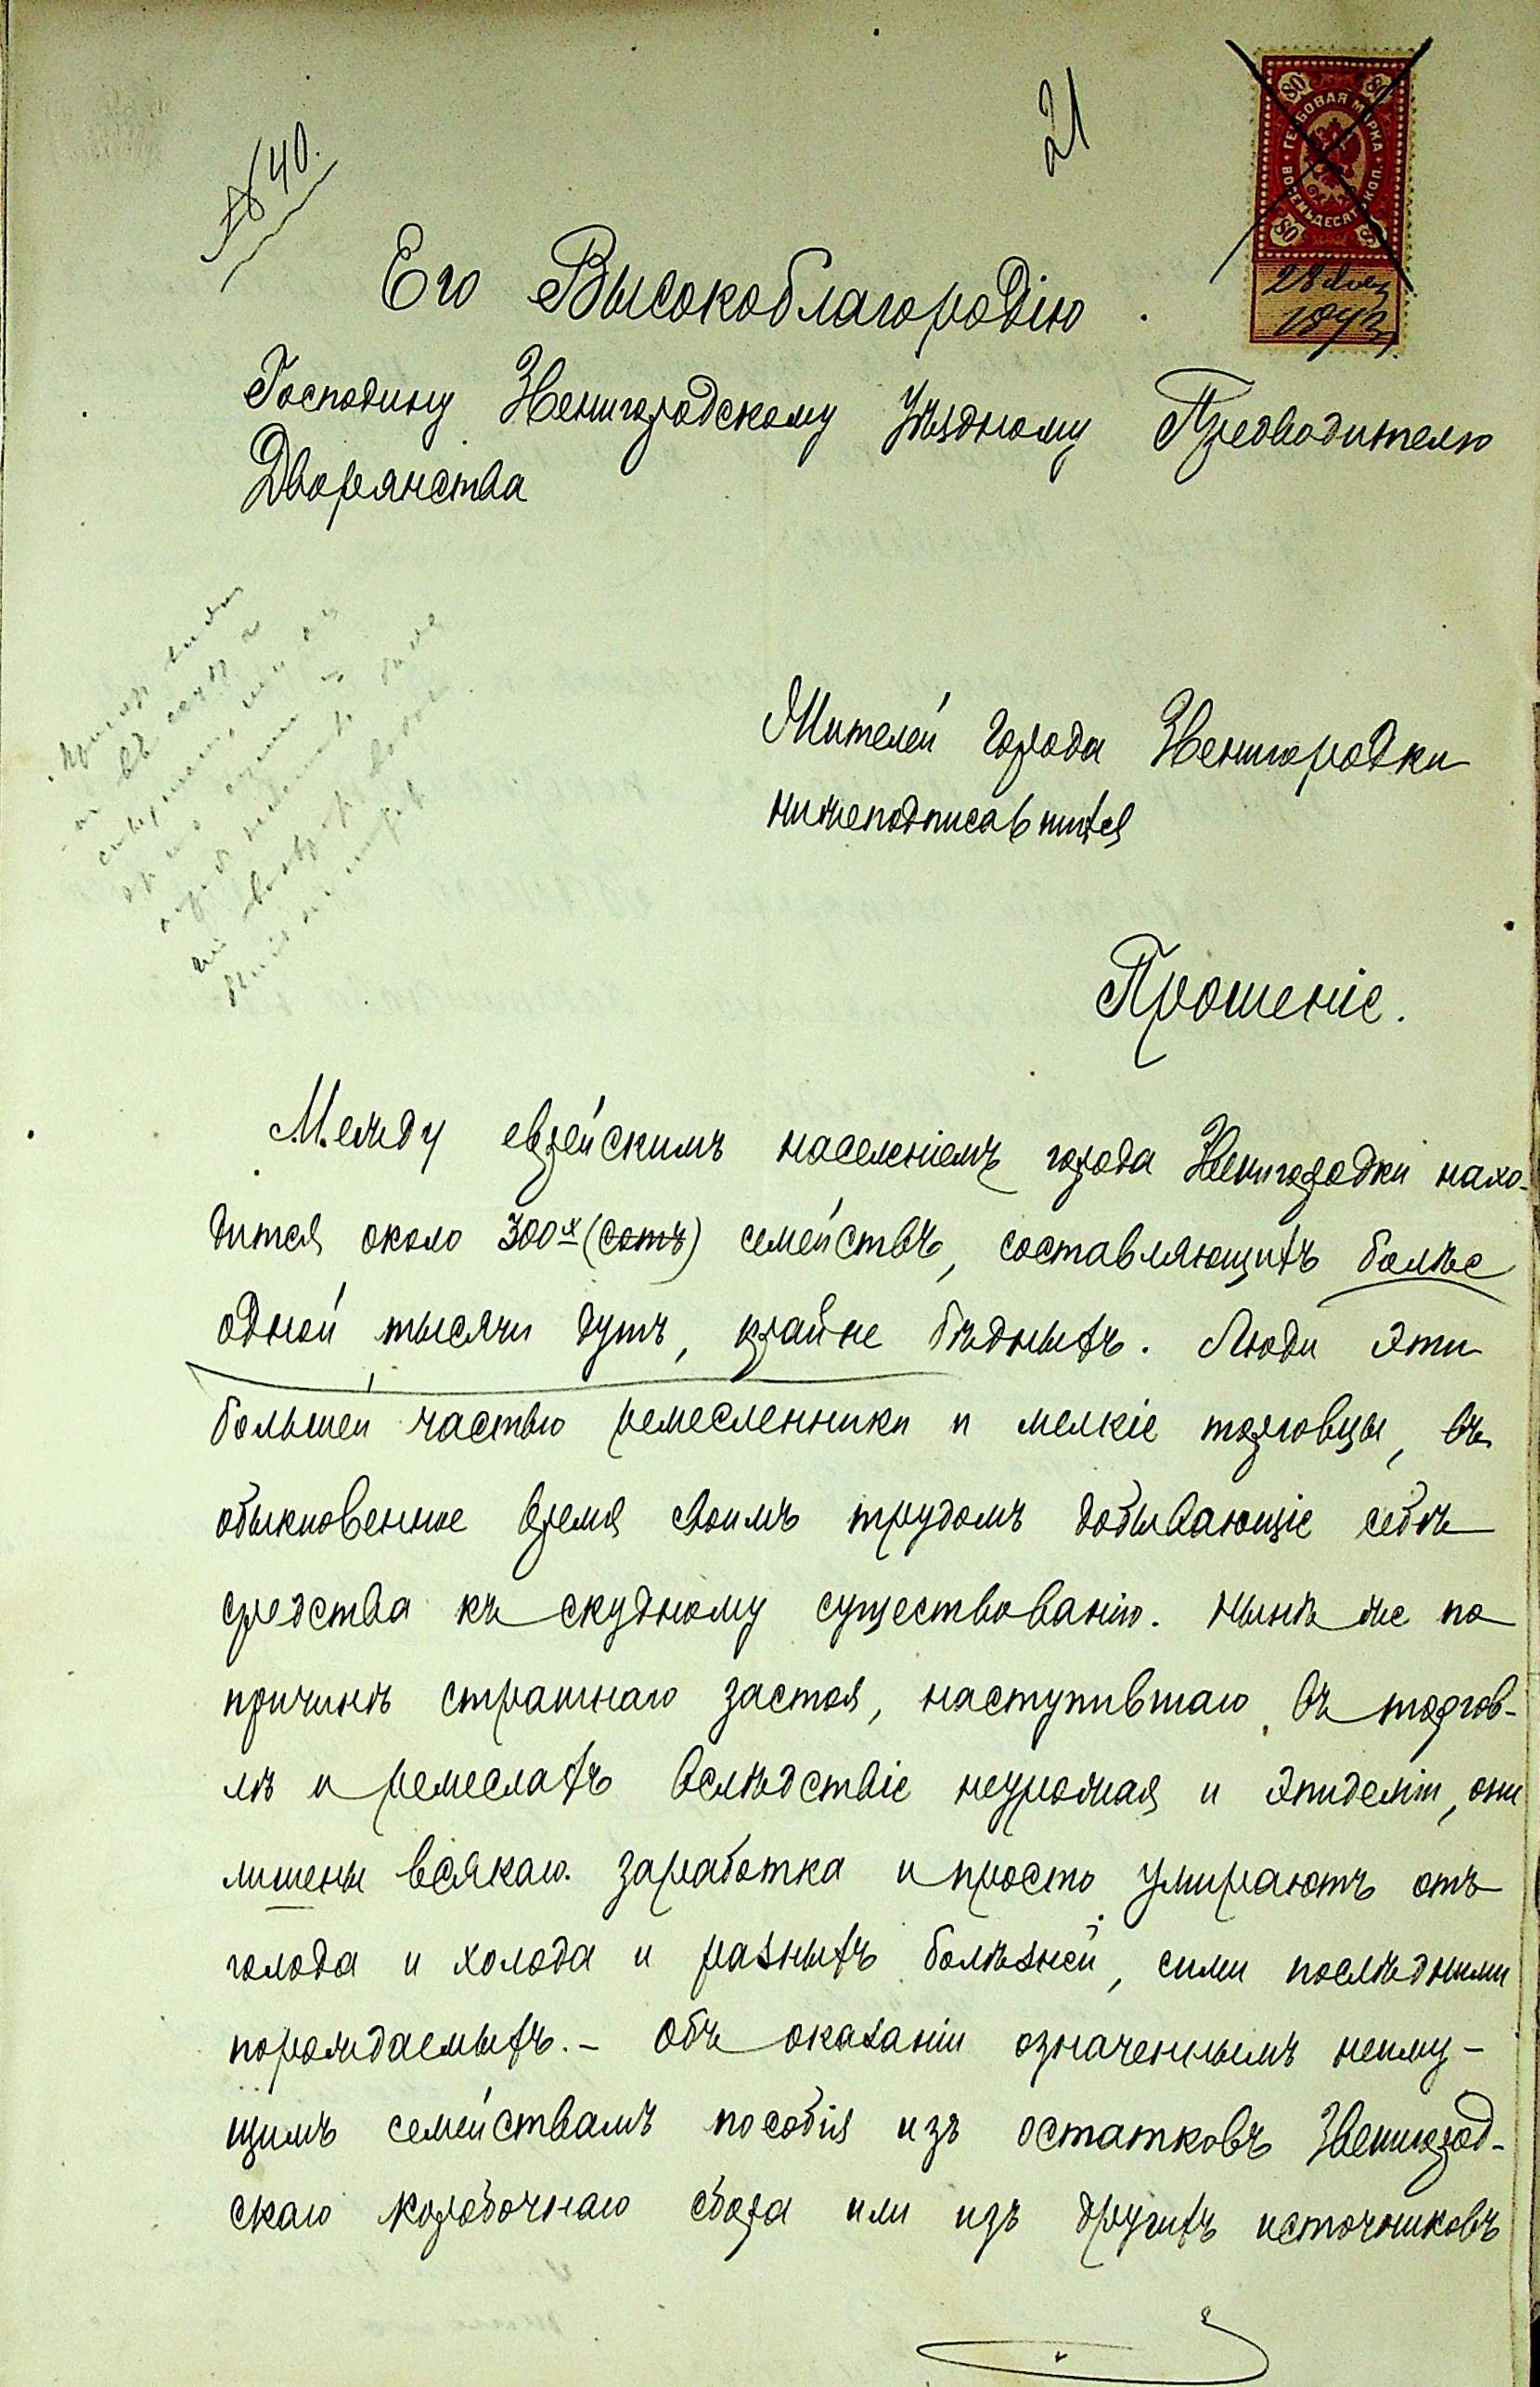 № 40.
21
80 80
ГЕРБОВАЯ МАРКА
ВОСЕМЬДЕСЯТ КОП.
80 80
28
1893
Его Высокоблагородію
Господину Звенигородскому Уѣздному Предводителю
Дворянства
Жителей города Звенигородки
нижеподписавшихся
Прошеніе.
Между еврейскимъ населеніемъ города Звенигородки нахо-
дится около 300х (сотъ) семействъ, составляющихъ болѣе
одной тысячи душъ, крайне бѣдныхъ. Люди эти
большей частью ремесленники и мелкіе торговцы, въ
обыкновенное время своимъ трудомъ добывающіе себѣ
средства къ скудному существованію. Нынѣ же по
причинѣ страшнаго застоя, наступившаго въ торгов-
лѣ и ремеслахъ вслѣдствіе неурожая и эпидеміи, они
лишены всякаго заработка и просто умираютъ отъ
голода и холода и разныхъ болѣзней, сими послѣдними
порождаемыхъ. - Объ оказаніи означеннымъ неиму-
щимъ семействамъ пособія изъ остатковъ Звенигород-
скаго коробочнаго сбора или изъ другихъ источниковъ